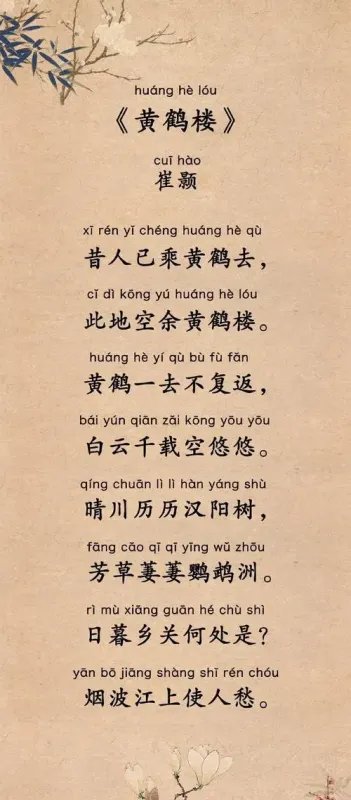 huáng hè lóu
《黄鹤楼》
cuī hào
崔颢
xī rén yǐ chéng huáng hè qù
昔人已乘黄鹤去，
cǐ dì kōng yú huáng hè lóu
此地空余黄鹤楼。
huáng hè yí qù bù fù fǎn
黄鹤一去不复返，
bái yún qiān zǎi kōng yōu yōu
白云千载空悠悠。
qíng chuān lì lì hàn yáng shù
晴川历历汉阳树，
fāng cǎo qī qī yīng wǔ zhōu
芳草萋萋鹦鹉洲。
rì mù xiāng guān hé chù shì
日暮乡关何处是？
yān bō jiāng shàng shǐ rén chóu
烟波江上使人愁。